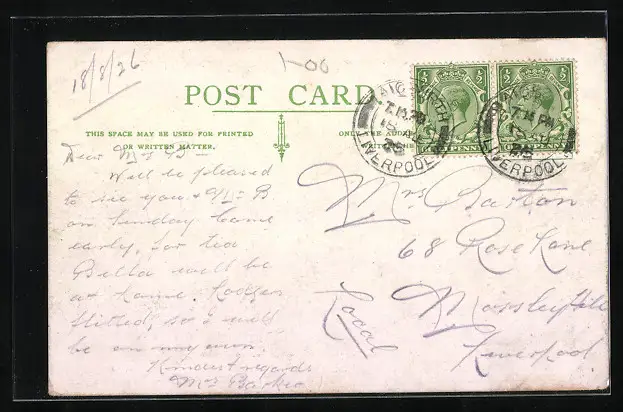 18/8/26
1-00
POST CARD
THIS SPACE MAY BE USED FOR PRINTED
OR WRITTEN MATTER.
ONLY THE ADD
Dear Mrs B—
Will be pleased
to see you & Mr B
on Sunday Come
early, for tea
Bella will be
at home.
flitted, so I will
be on my own
Kindest regards
Mrs
Mrs Barton
68 Rose Lane
Mossley Hill
Liverpool
Local
½ ½
AIGBURTH
7 PM
LIVERPOOL
7 PM
LIVERPOOL